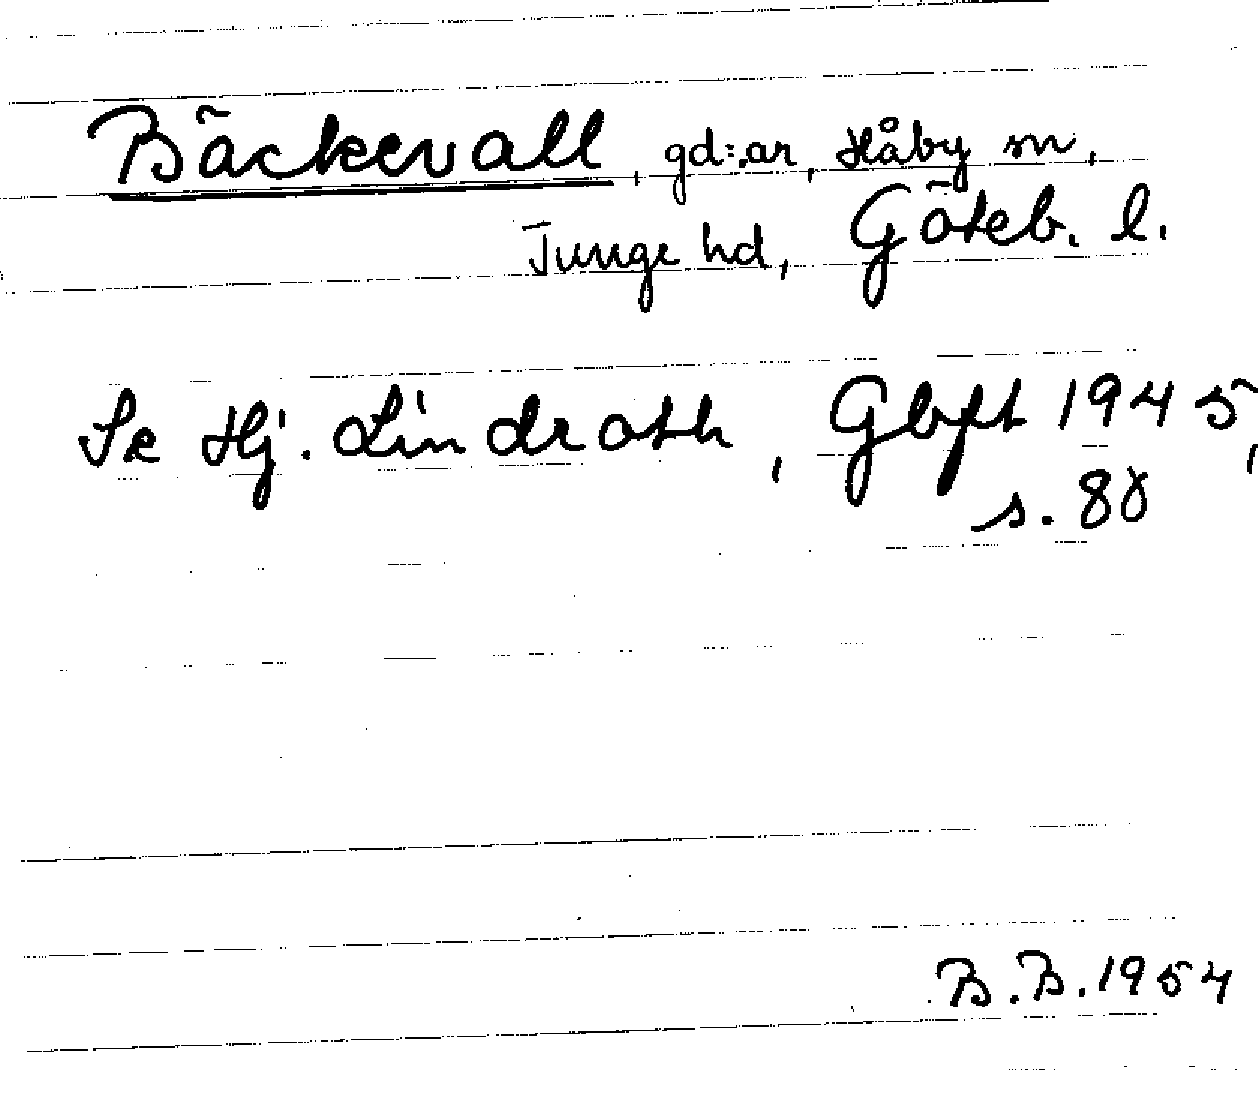 Bäckevall, gd:ar, Håby sn,
Tunge hd, Göteb. l.
Se Hj. Lindroth, Gbgft 1945,
s. 88
B.B. 1954